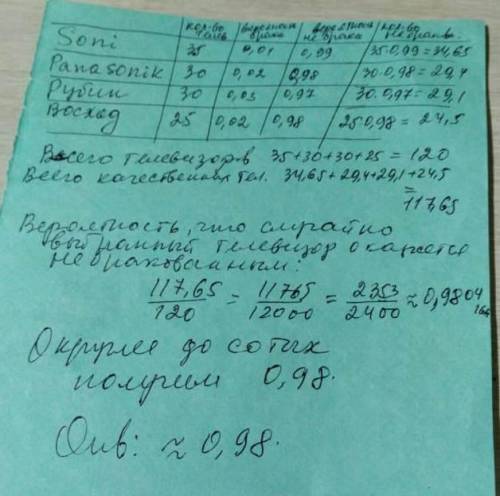 кол-во телв вероятная брака вероятная не брака кол-во не браков.
Soni 35 0,01 0,99 35·0,99=34,65
Panasonik 30 0,02 0,98 30·0,98=29,4
Рубин 30 0,03 0,97 30·0,97=29,1
Восход 25 0,02 0,98 25·0,98=24,5
Всего телевизоров 35+30+30+25=120
Всего качественных тел. 34,65+29,4+29,1+24,5
=
117,65
Вероятность, что случайно
выбранный телевизор окажется
не бракованным:
117,65/120 = 11765/12000 = 2353/2400 ≈ 0,9804
Округляя до сотых
получим 0,98.
Отв: ≈ 0,98.